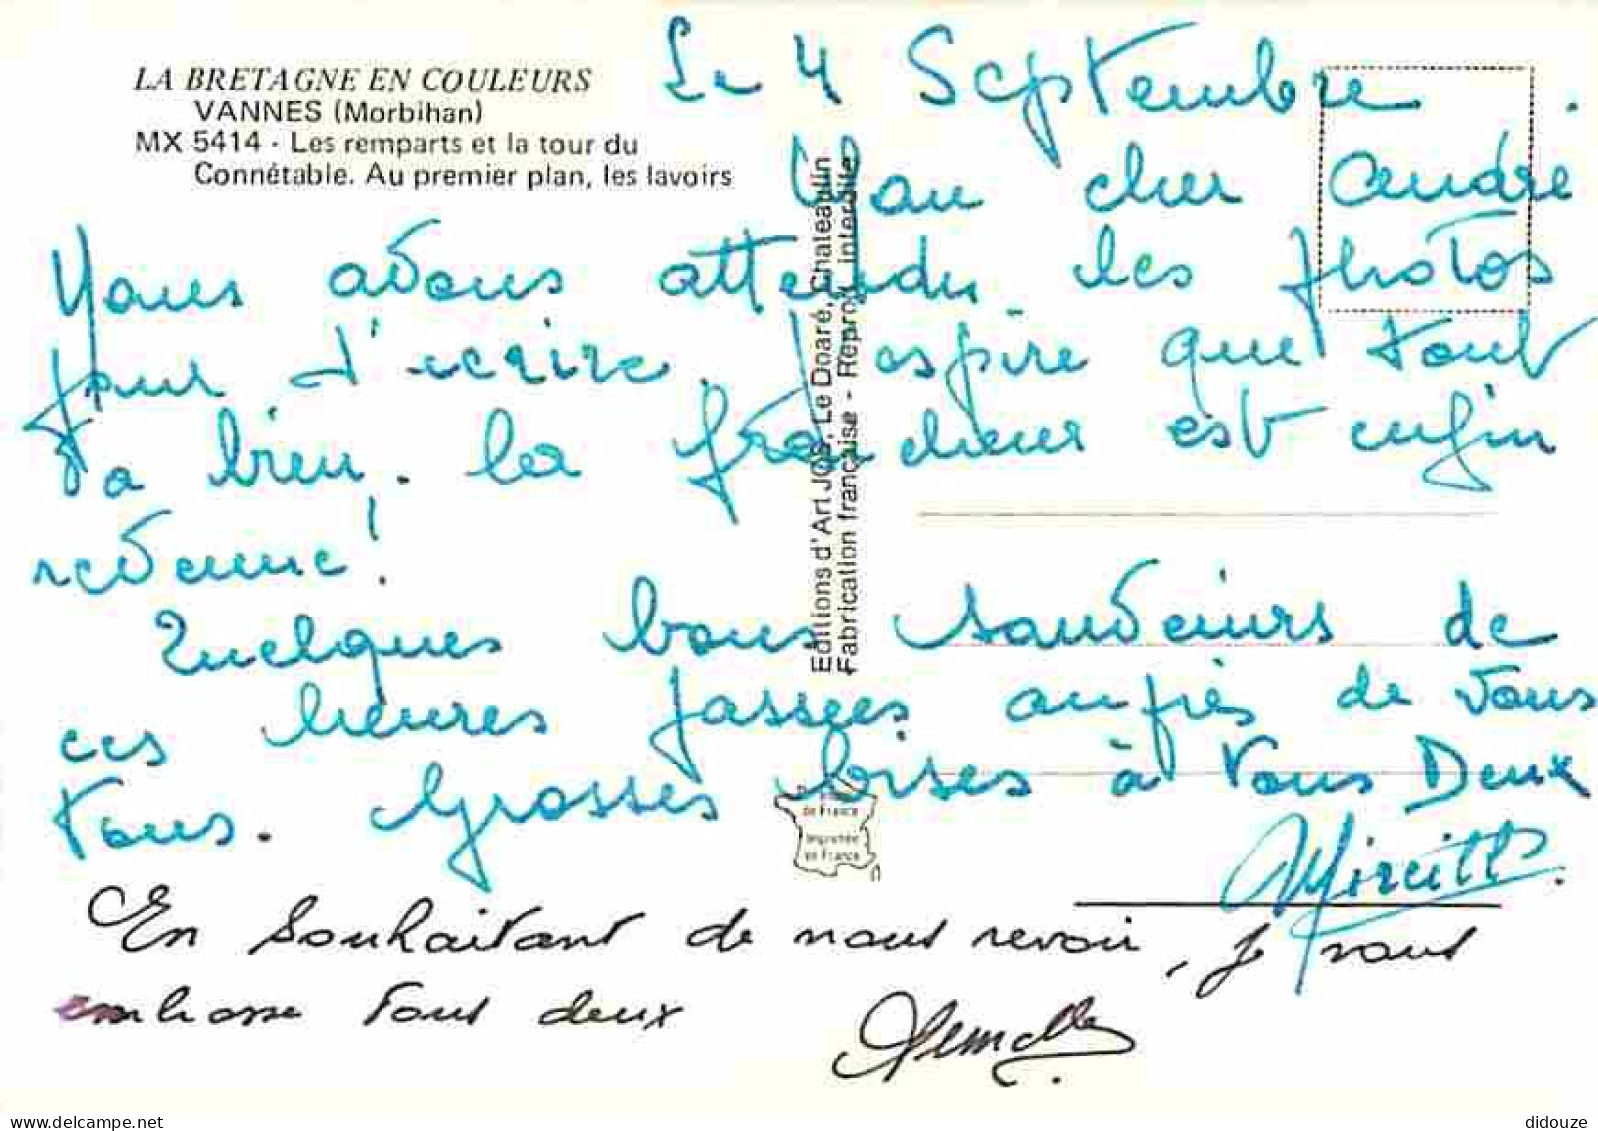 LA BRETAGNE EN COULEURS
VANNES (Morbihan)
MX 5414 - Les remparts et la tour du
Connétable. Au premier plan, les lavoirs
Le 4 Septembre.
Mon cher andré
Nous avons attendu les photos
pour t'ecrire. J'espère que tout
va bien. la fraîcheur est enfin
revenue!
Quelques bons souvenirs de
ces heures passees auprès de vous
tous. Grosses bises à vous Deux
En souhaitant de nous revoir, je vous
embrasse tous deux
Editions d'Art JOS, Le Doaré, Chateaulin
Fabrication française - Reprod. interdite
de France
Imprimée
en France
didouze